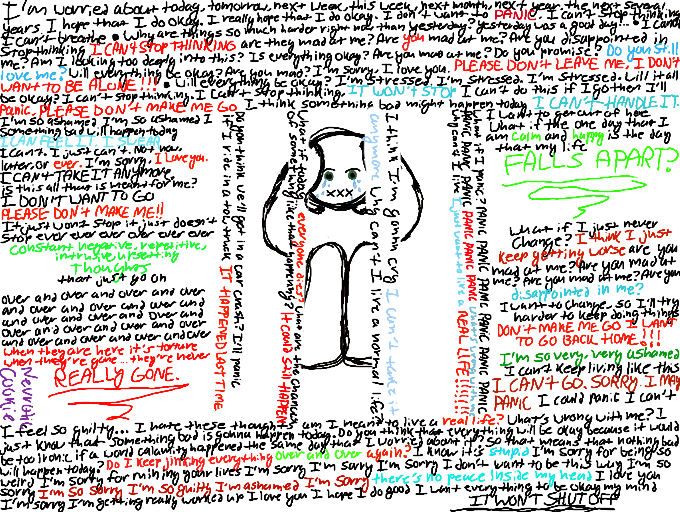 I'm worried about today, tomorrow, next week, this week, next month, next year, the next several
years, I hope that I do okay. I really hope that I do okay. I don't want to PANIC. I can't stop thinking
I can't breathe. Why are things so much harder right now than yesterday? Yesterday was a good day. I cannot
stop thinking I CAN'T STOP THINKING are they mad at me? Are you mad at me? Are you disappointed in
me? Am I looking too deeply into this? Is everything okay? Are you mad at me? Do you promise? Do you still
love me? Will everything be okay? Are you mad? I'm sorry. I love you. PLEASE DON'T LEAVE ME, I DON'T
WANT TO BE ALONE!!! Will everything be okay? I'm stressed. I'm stressed. I'm stressed. Will it all
be okay? I can't stop thinking. I can't stop thinking. IT WON'T STOP I can't do this if I go then I'll
Panic. PLEASE DON'T MAKE ME GO I think something bad might happen today I CAN'T HANDLE IT.
I'm so ashamed I'm so ashamed I'm
Something bad will happen today
I CAN FEEL IT. I SWEAR
I can't. I just can't. Not now
later. Or ever. I'm sorry. I love you.
I CAN'T TAKE IT ANYMORE
is this all that is meant for me?
I DON'T WANT TO GO
PLEASE DON'T MAKE ME!!
It just won't stop it just doesn't
stop ever ever ever ever ever ever
constant negative, repetitive,
intrusive upsetting
Thoughts
that just go on
over and over and over and over and
over and over and over and over and
over and over and over and over and
over and over and over and over and
When they are here it's torture
when they're gone... they're never
REALLY GONE.
Neurotic
Cookie
Do you think we'll get in a car crash? I'll panic
if I ride in a tow truck IT HAPPENED LAST TIME
What if today everyone dies? What are the chances
of something like that happening? It could still HAPPEN
I think I'm gonna cry I can't take it
anymore why can't I live a normal life?
What if I panic? PANIC PANIC PANIC PANIC PANIC
PANIC PANIC PANIC PANIC PANIC PANIC What's wrong with me?
Why can't I live I just want to live a REAL LIFE!!!!!!
I want to get out of here
What if the one day that I
am calm and happy is the day
that my life
FALLS APART?
What if I just never
Change? I think I just
keep getting worse are you
mad at me? Are you mad at
me? Are you mad at me? Are you
disappointed in me?
I want to change. So I'll try
harder to keep doing things
DON'T MAKE ME GO I WANT
TO GO BACK HOME!!!
I'm so very, very ashamed
I can't keep living like this
I CAN'T GO. SORRY. I MAY
PANIC I could panic I can't
I feel so guilty... I hate these thoughts am I meant to live a real life? What's wrong with me? I
just know that something bad is gonna happen today. Do you think that everything will be okay because it would
be too ironic if a world calamity happened the same day that I worried about it? So that means that nothing bad
will happen today. Do I keep jinxing everything over and over again? I know it is stupid I'm sorry for being so
weird I'm sorry for ruining your lives I'm sorry I'm sorry I'm sorry I don't want to be this way I'm so
sorry I'm so sorry I'm so guilty I'm ashamed I'm sorry there's no peace inside my head I love you
I'm sorry I'm getting really worked up I love you I hope I do good I want everything to be okay my mind
IT WON'T SHUT OFF